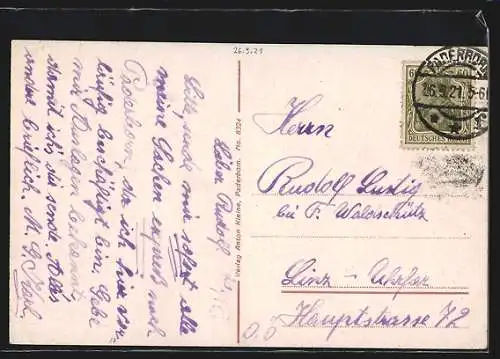 26.5.21
Lieber Rudolf!
Bitte, sende mir sofort alle
meine Sachen express nach
Paderborn, da ich hier vor-
läufig beschäftigt bin. Gebe
mir Auslagen bekannt
damit ich sie sende. Alles
andere brieflich. M. G.
Verlag Anton Kleine, Paderborn. No. 8324
PADERBORN
26.5.21. 5-6
DEUTSCHES REICH
Herrn
Rudolf Lustig
bei F. Waldschütz
Linz - Urfar
Hauptstrasse 72
O.Ö